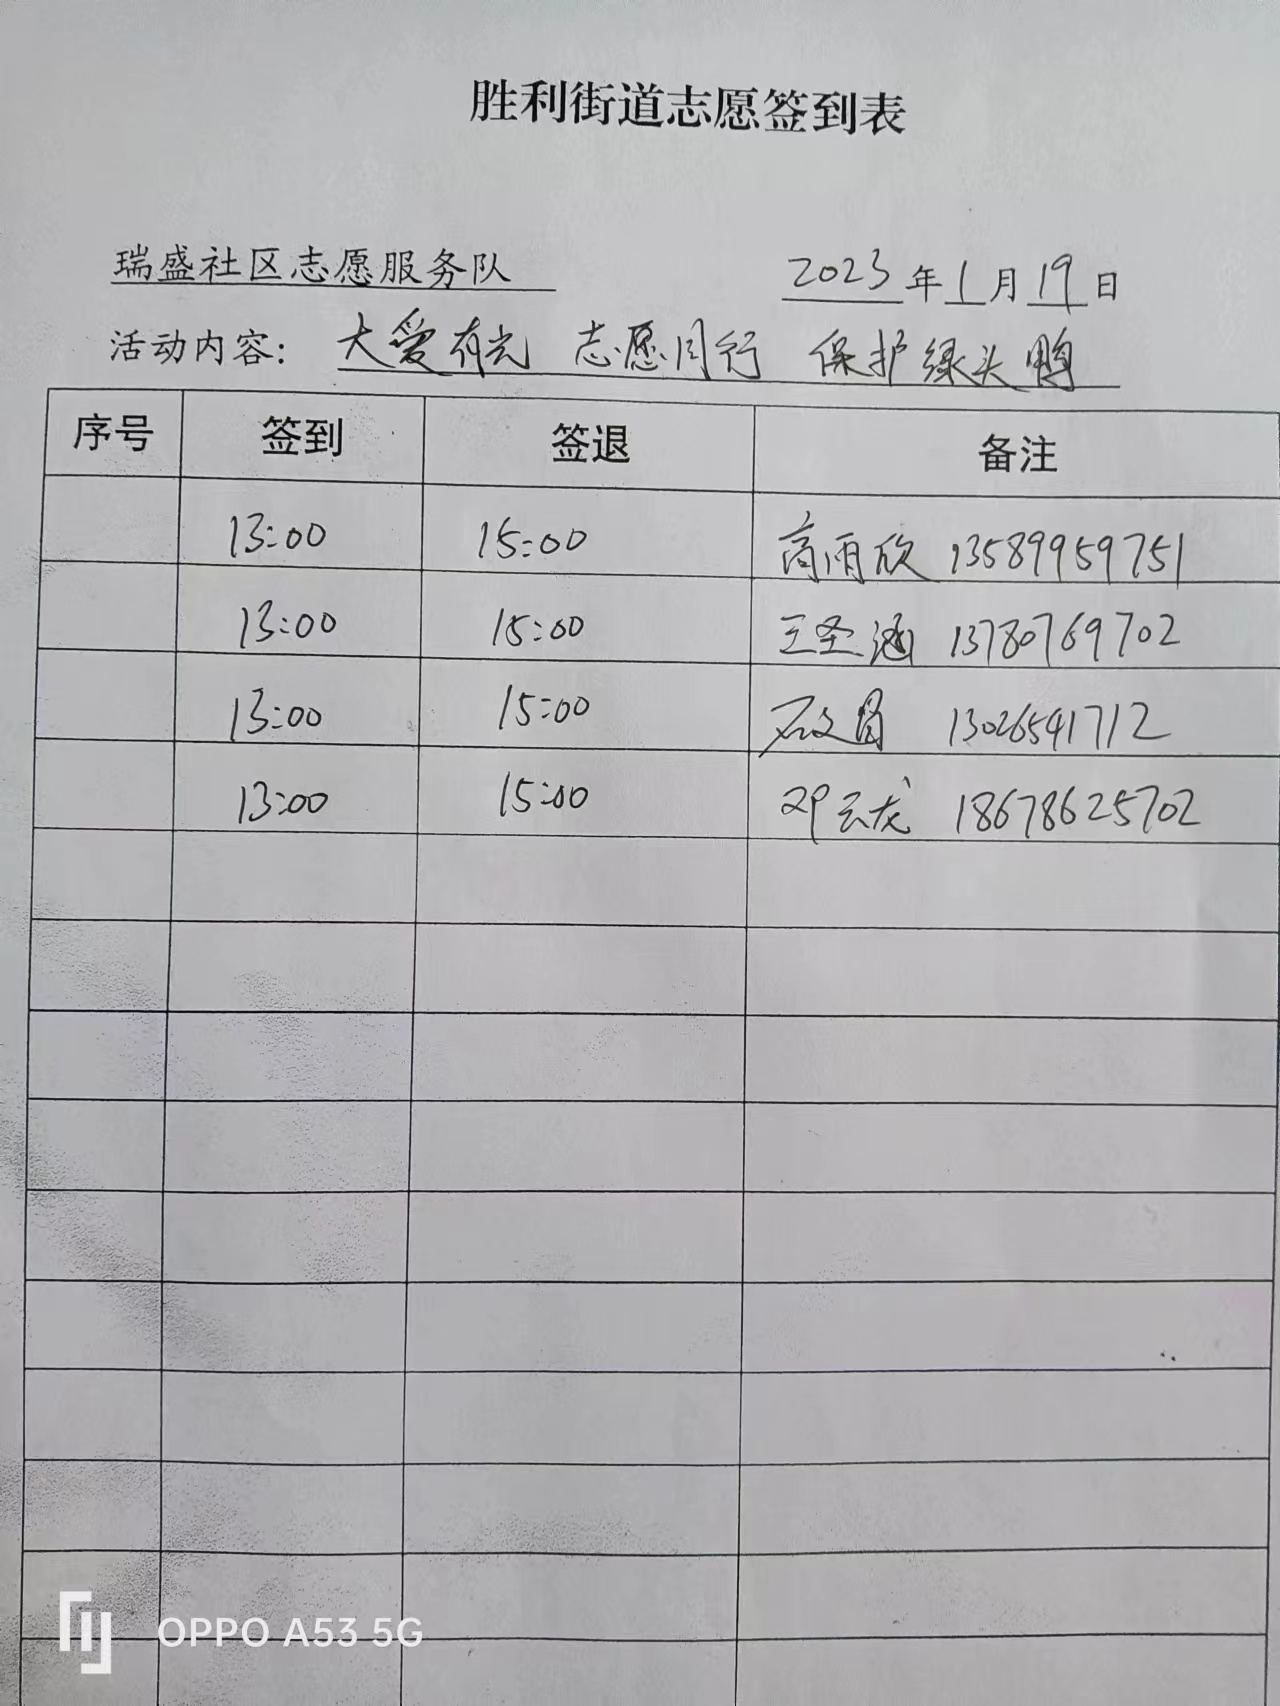 胜利街道志愿签到表
瑞盛社区志愿服务队 2023年1月19日
活动内容：大爱有光 志愿同行 保护绿头鸭
序号 签到 签退 备注
13:00 15:00 高雨欣 13589959751
13:00 15:00 王圣涵 13780769702
13:00 15:00 13026541712
13:00 15:00 邓云龙 18678625702
OPPO A53 5G